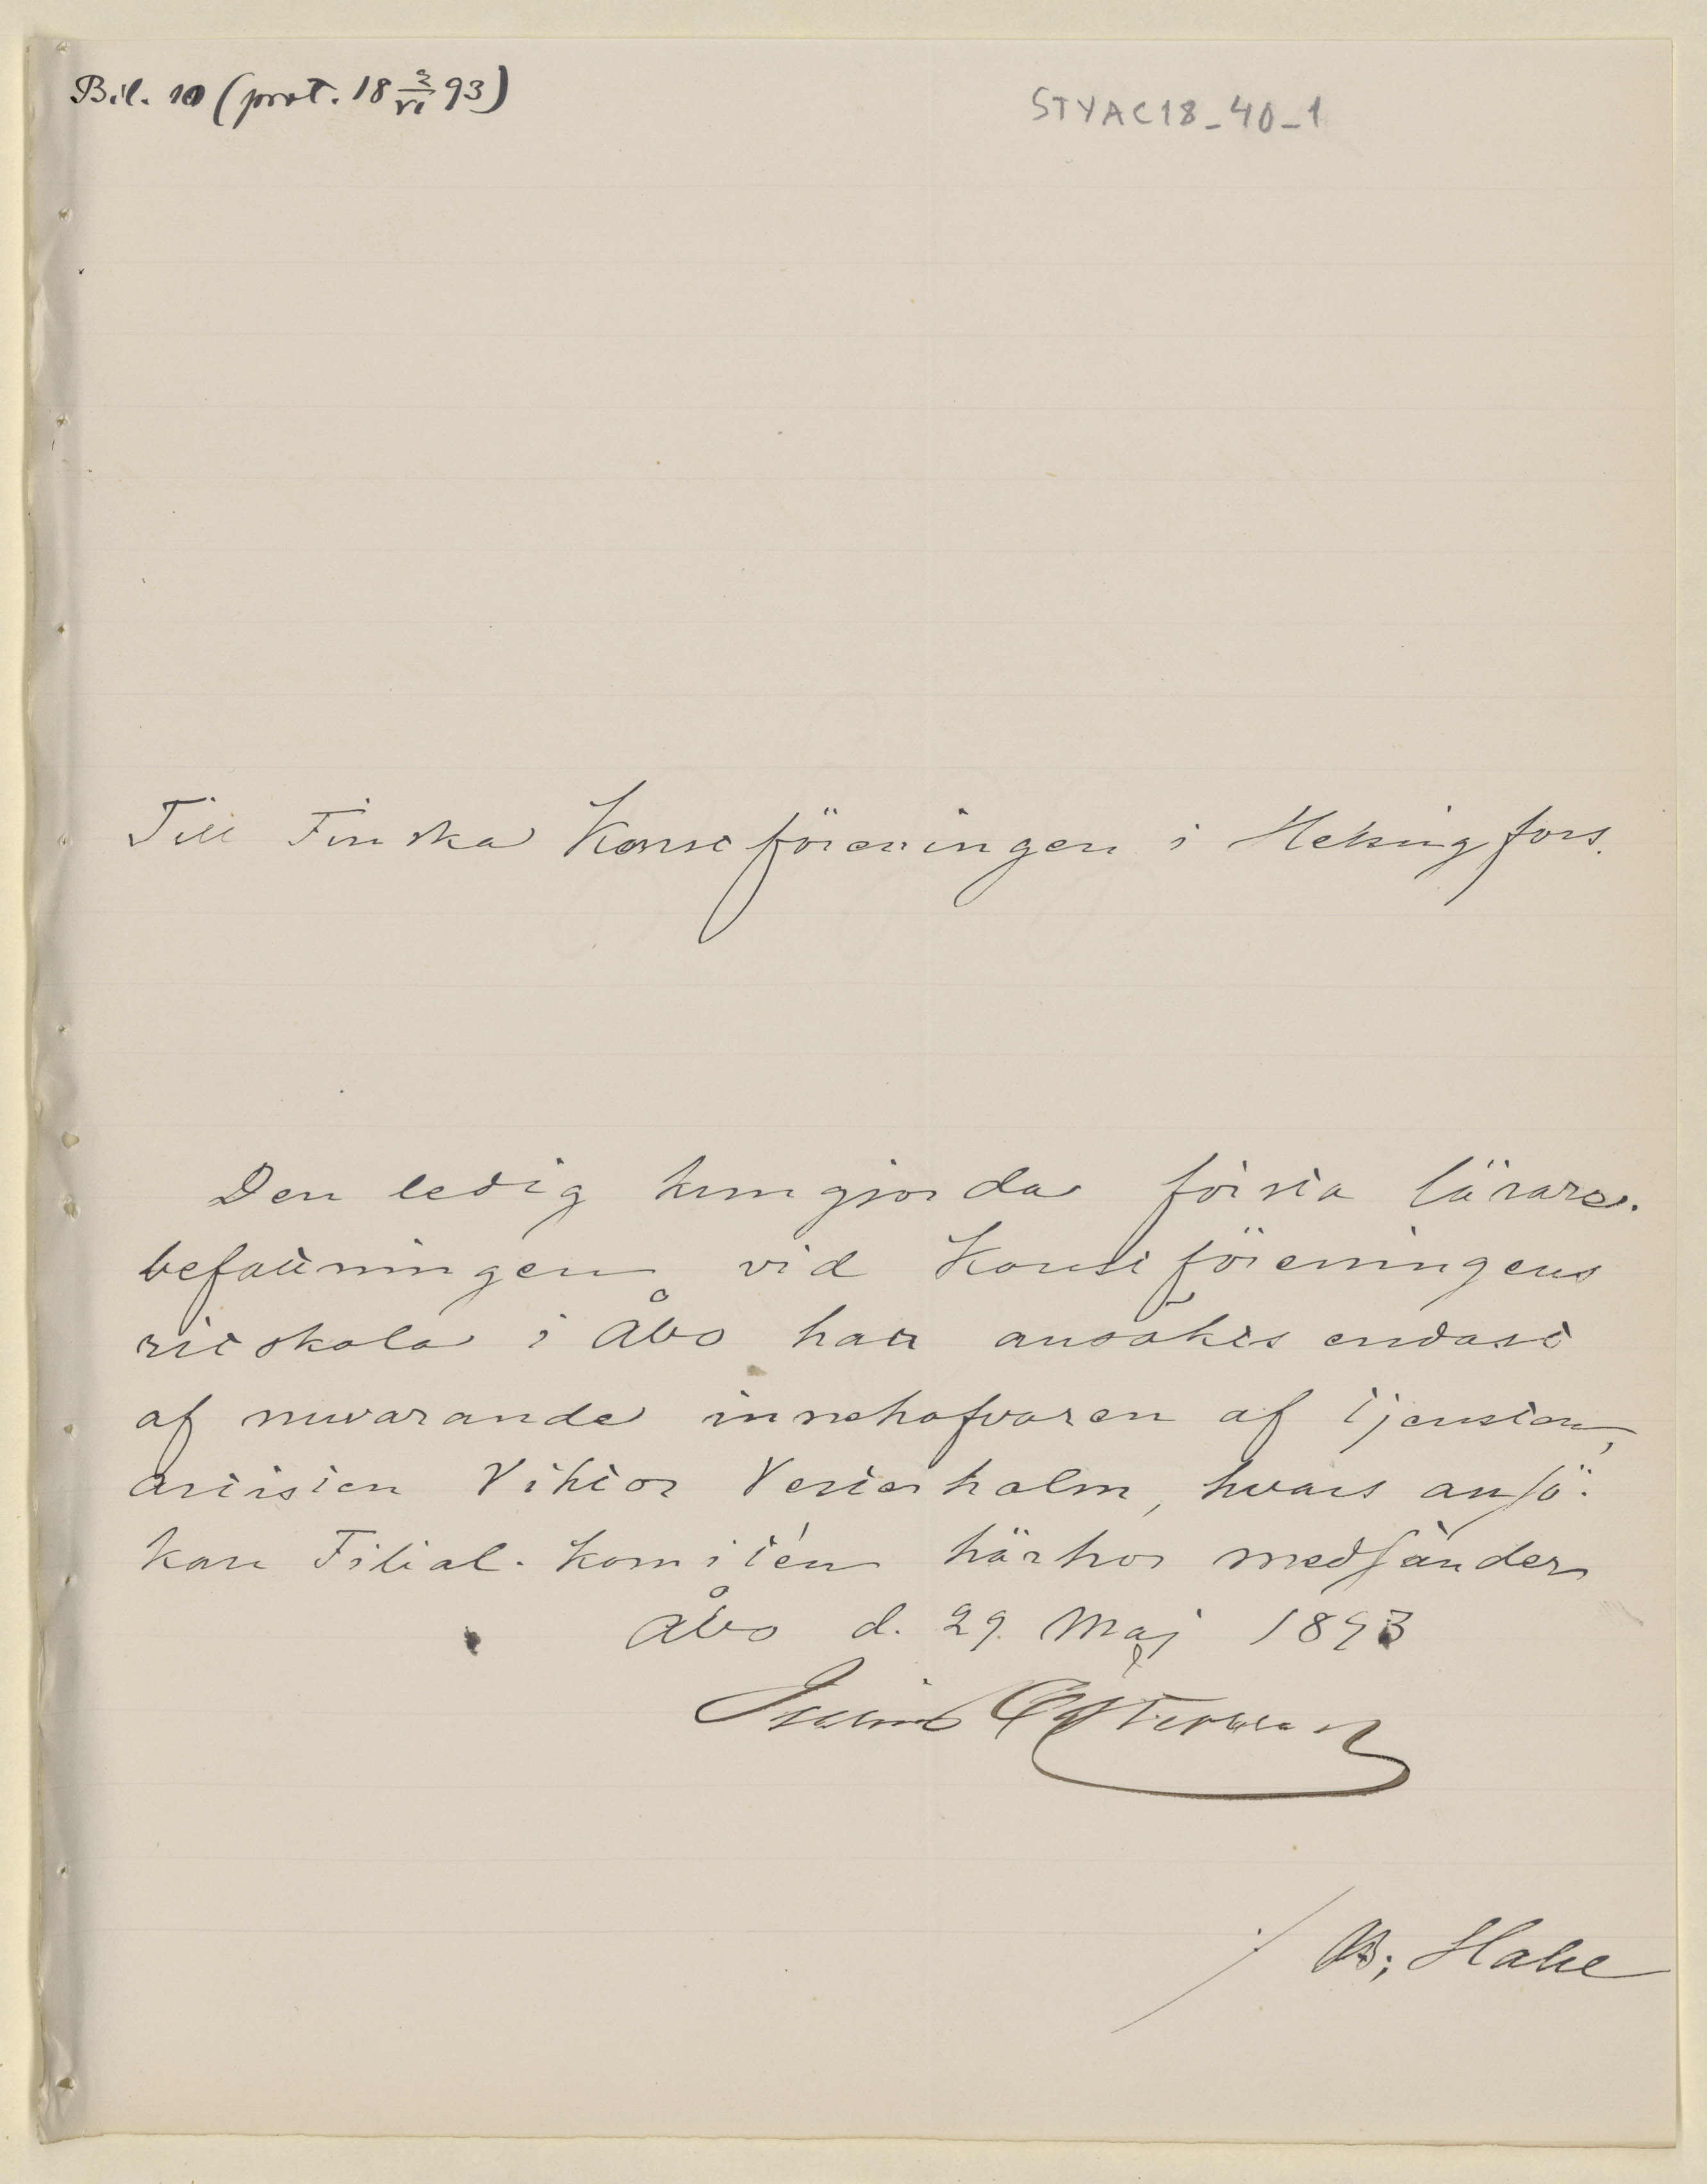 Bil. 10 (prot. 18 2/VI 93)
STYAC18_40_1
Till Finska Konstföreningen i Helsingfors.
Den ledig kungjorda första lärare-
befattningen vid Konstföreningens
ritskola i Åbo har ansökts endast
af nuvarande innehafvaren af tjensten,
artisten Viktor Vesterholm, hvars ansö-
kan Filial-komitén härhos medsänder
Åbo d. 29. Maj 1893
./ B;